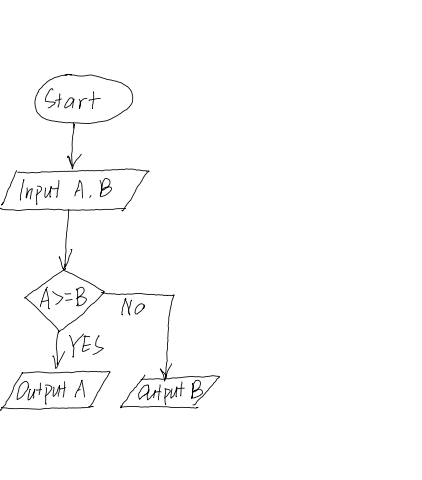 Start
Input A.B
A>=B
NO
YES
Output A
Output B